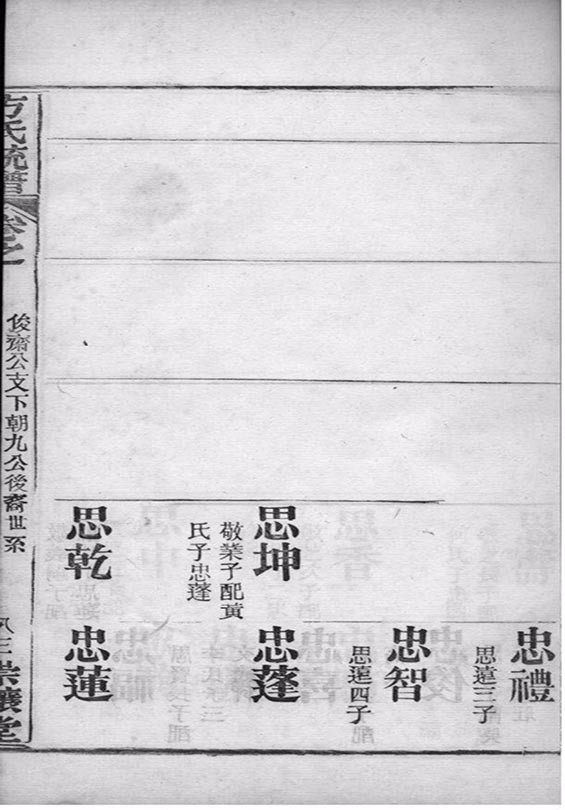 忠禮
思遠三子
忠智
思遠四子
思坤
敬業子配黃
氏子忠蓬
忠蓬
思乾
忠蓮
方氏統譜
卷之
俊齋公支下朝九公後裔世系